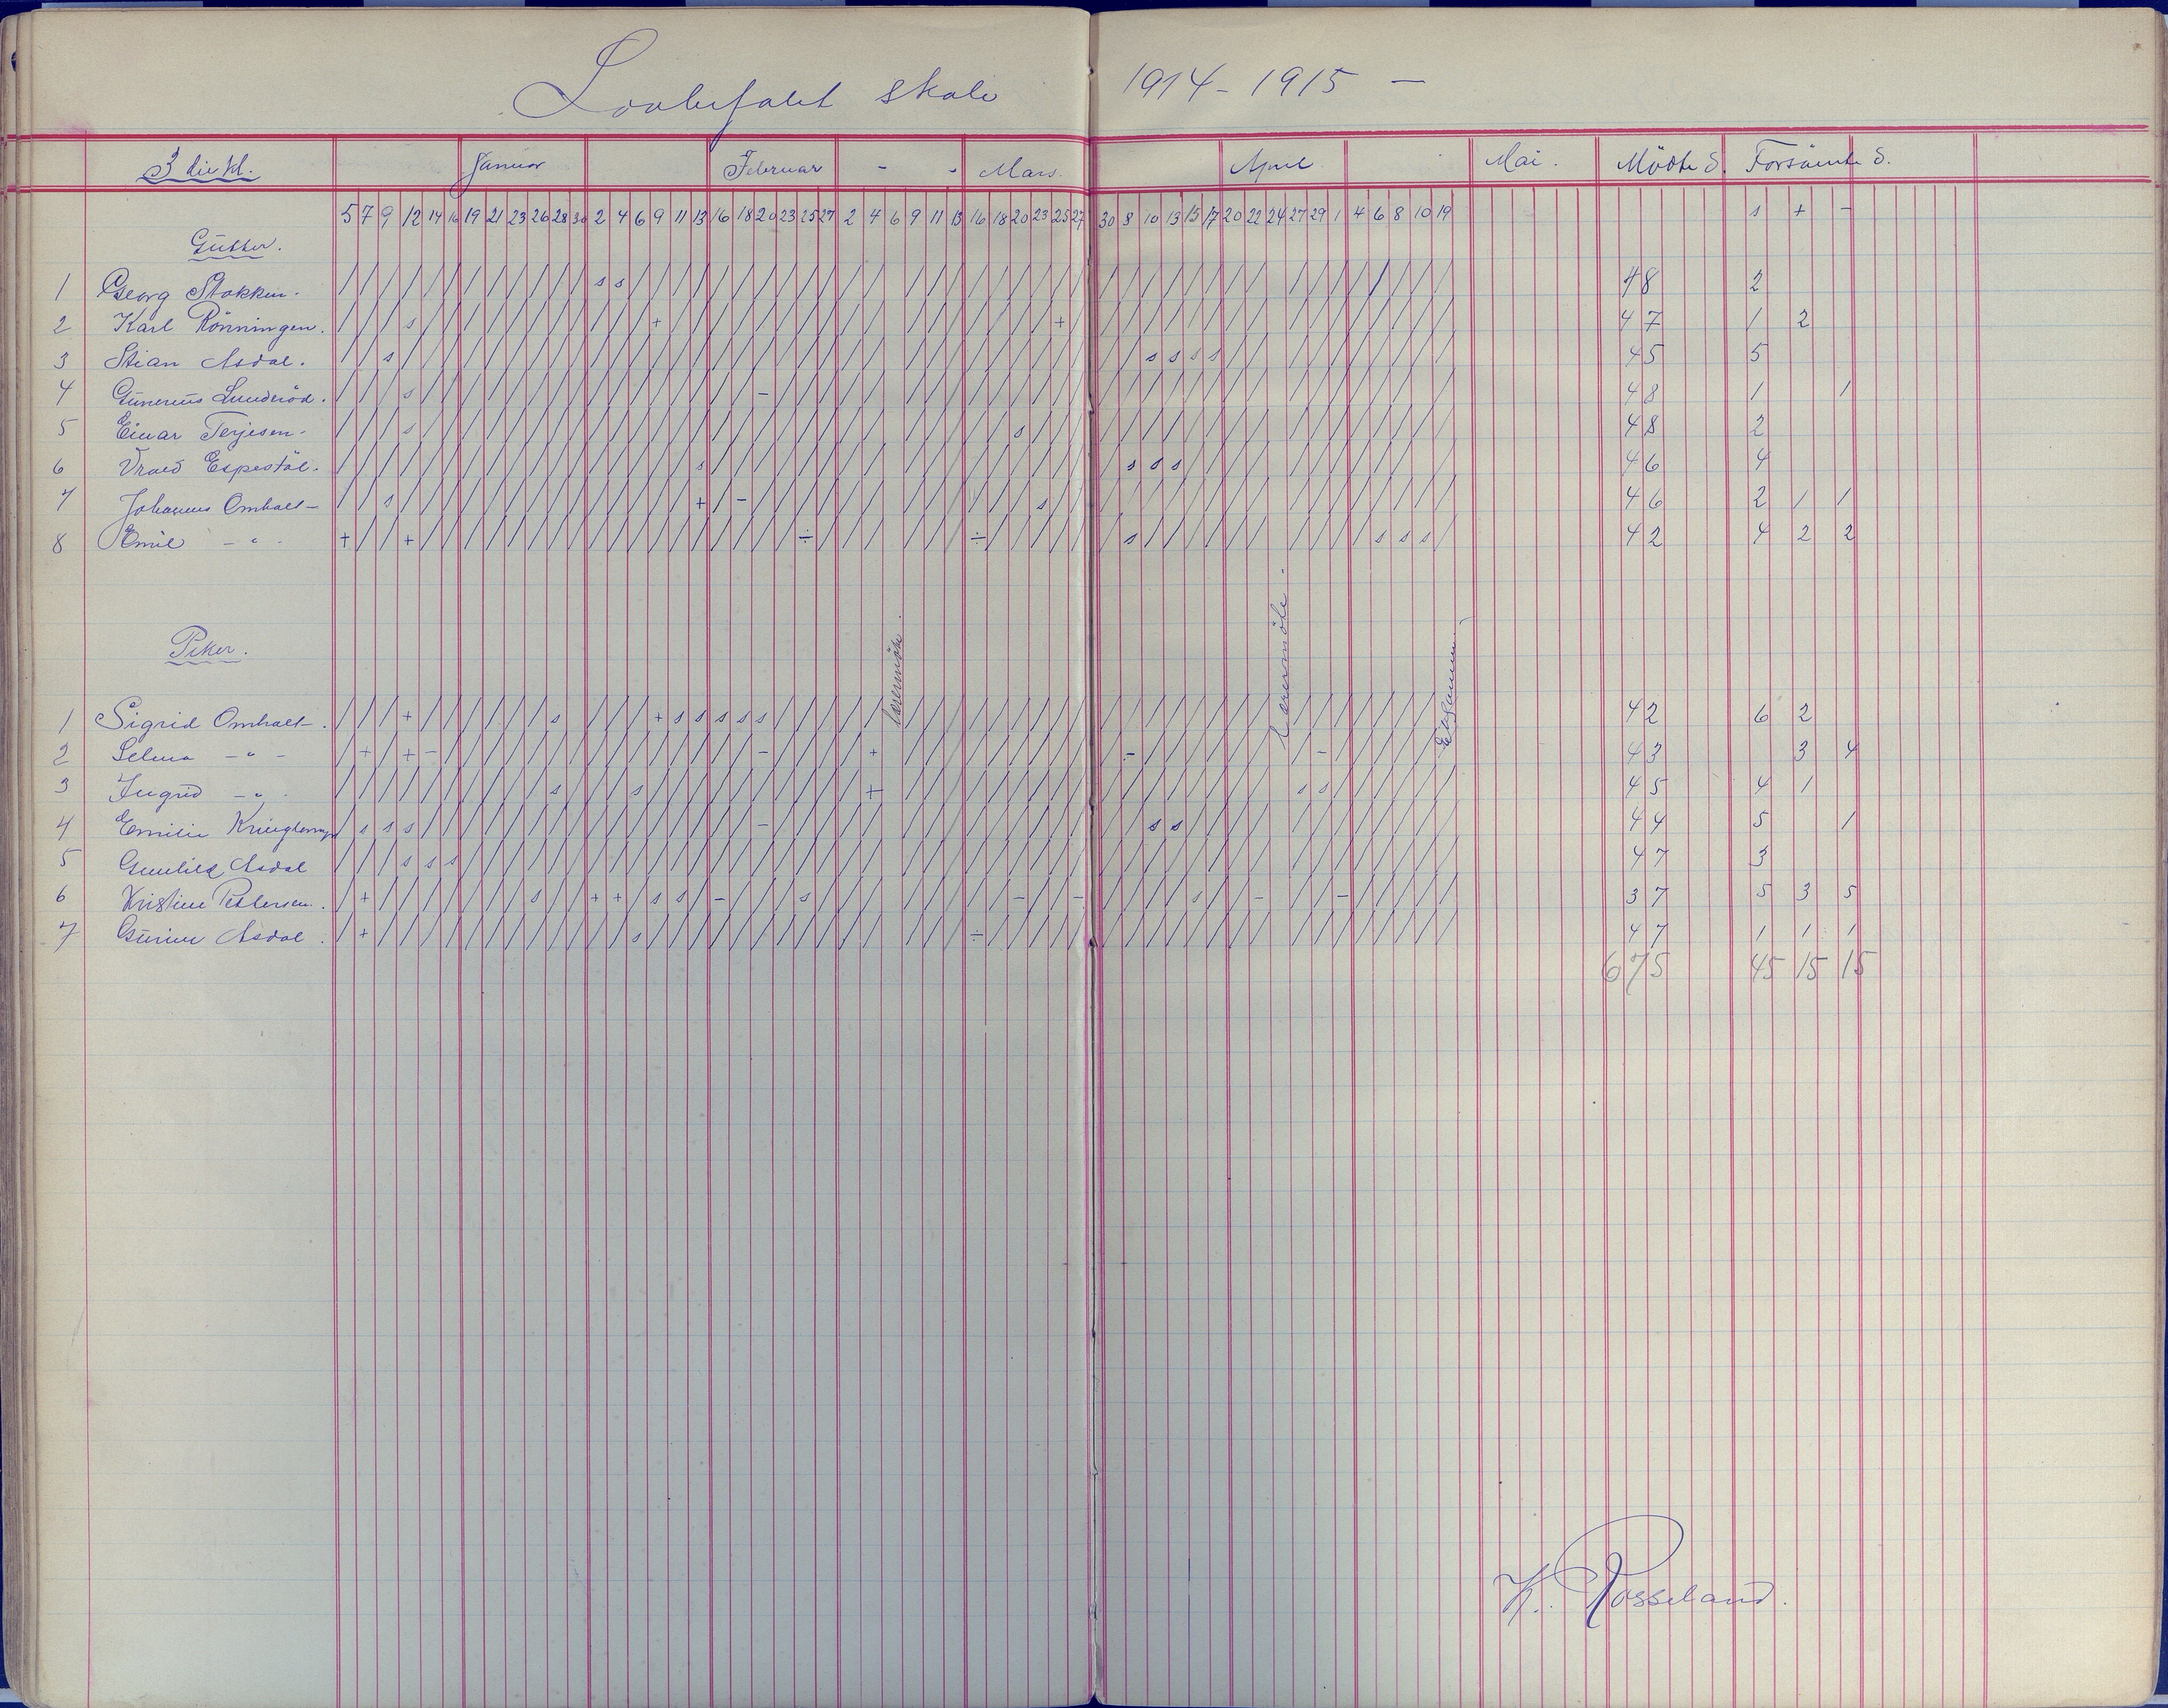 skole 1914-1915 -
3die kl. Januar Februar - - Mars. April Mai. Mödte d. Forsömte d.
5 7 9 12 14 16 19 21 23 26 28 30 2 4 6 9 11 13 16 18 20 23 25 27 2 4 6 9 11 13 16 18 20 23 25 27 30 8 10 13 15 17 20 22 24 27 29 1 4 6 8 10 19 s + -
Gutter.
1 Georg Stokken. / / / / / / / / / / / / s s / / / / / / / / / / / / / / / / / / / / / / / / / / / / / / / / / / / / / 48 2
2 Karl Rönningen. / / / s / / / / / / / / / / / + / / / / / / / / / / / / / / / / / / + / / / / / / / / / / / / / / / / / 47 1 2
3 Stian Asdal. / / s / / / / / / / / / / / / / / / / / / / / / / / / / / / / / / / / / / / s s s s / / / / / / / / / / 45 5
4 Gunerius Lunderöd. / / / s / / / / / / / / / / / / / / / / - / / / / / / / / / / / / / / / / / / / / / / / / / / / / / / 48 1 1
5 Einar Terjesen. / / / s / / / / / / / / / / / / / / / / / / / / / / / / / / s / / / / / / / / / / / / / / / / / / / / 48 2
6 Espestöl. / / / / / / / / / / / / / / / / / s / / / / / / / / / / / / / / / / / / s s s / / / / / / / / / / / / 46 4
7 Johannes Omholt - / / s / / / / / / / / / / / / / / + - / / / / / / / / / / / / / s / / / / / / / / / / / / / / / / / / 46 2 1 1
8 Emil - " - + / / + / / / / / / / / / / / / / / / / / / ÷ / / / / / / ÷ / / / / / / s / / / / / / / / / / s s s / 42 4 2 2
Piker.
lærermöte.
lærermöte.
Eksamen.
1 Sigrid Omholt -. / / / + / / / / / / s / / / / + s s s s s / / / / / / / / / / / / / / / / / / / / / / / / / / / / / / 42 6 2
2 Selma - " - / + / + - / / / / / / / / / / / / / / / - / / / / + / / / / / / / / / / - / / / / / / / / - / / / / / / 43 3 4
3 Ingrid - " - / / / / / / / / / / s / / / s / / / / / / / / / / + / / / / / / / / / / / / / / / / / / s s / / / / / / 45 4 1
4 Emilie / s s s / / / / / / / / / / / / / / / / - / / / / / / / / / / / / / / / / s s / / / / / / / / / / / / 44 5 1
5 Gunhild Asdal / / / s s s / / / / / / / / / / / / / / / / / / / / / / / / / / / / / / / / / / / / / / / / / / / / / 47 3
6 Kristine Pettersen. / + / / / / / / / s / / + + / s s / - / / / s / / / / / / / / - / / - / / / / s / / - / / / - / / / / / 37 5 3 5
7 Gurine Asdal. / + / / / / / / / / / / / / s / / / / / / / / / / / / / / ÷ / / / / / / / / / / / / / / / / / / / / / 47 1 1 1
675 45 15 15
K. Rosseland.